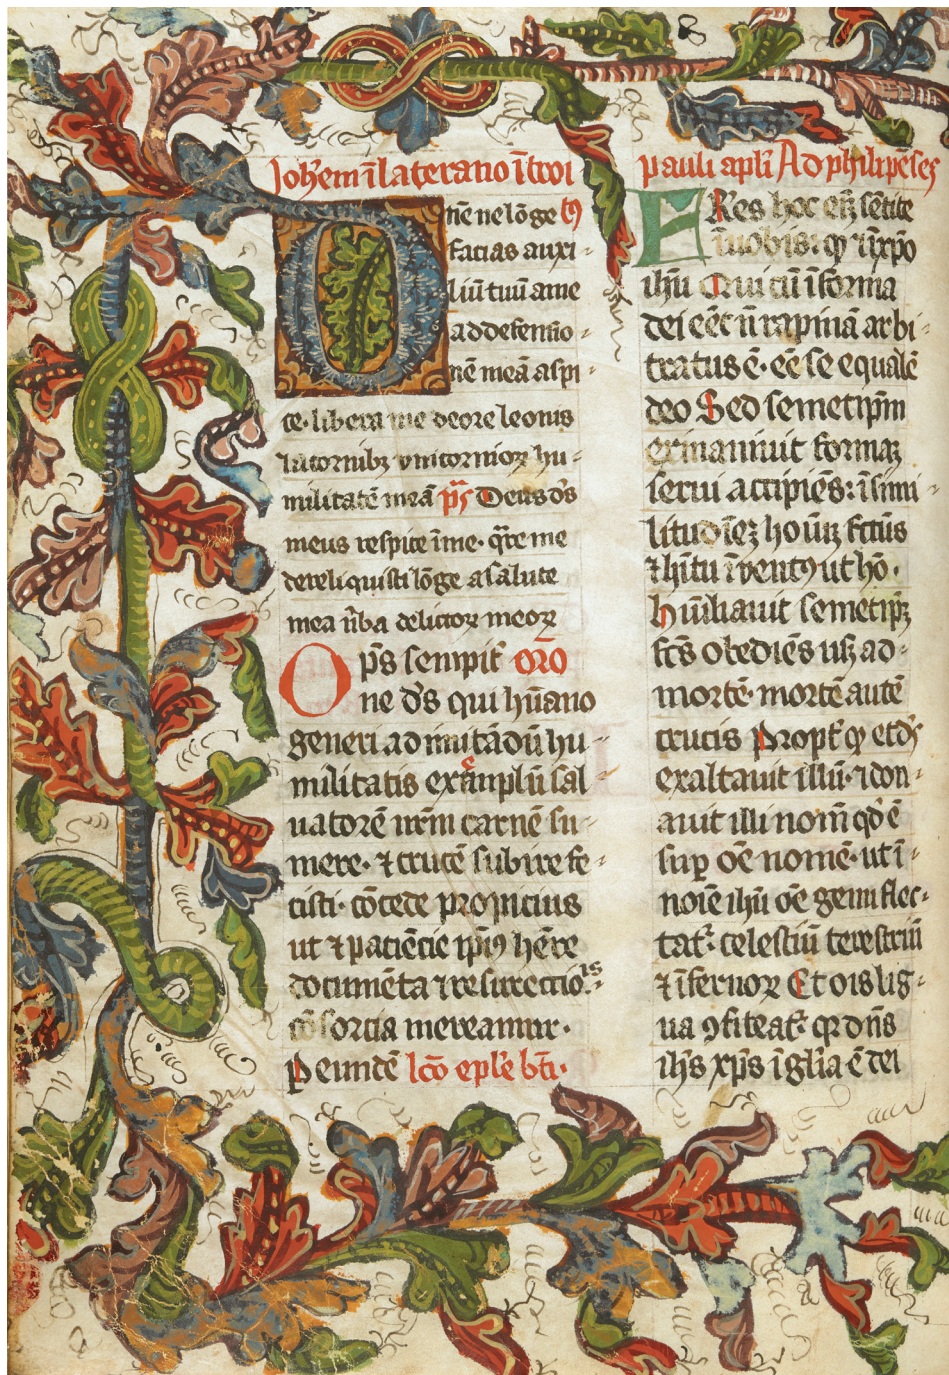 Johēm ī laterano ītroi
Dn̄e ne lōge
facias auxi-
liū tuū a me
ad defensio-
nē meā aspi-
ce· libera me de ore leonis
⁊ a cornibꝫ vnicornioꝝ hu-
militatē meā p̄s Deus d̄s
meus respice ī me· q̄re me
dereliquisti lōge a salute
mea v̄ba delictoꝝ meoꝝ
Op̄s sempit̄ or̄o
ne d̄s qui hūano
generi ad imitādū hu-
militatis exemplū sal-
uatorē nr̄m carnē su-
mere· ⁊ crucē subire fe-
cisti· cōcede propicius
ut ⁊ paciēcie ipīꝰ hēre
documēta ⁊ resurectiōis
cōsorcia mereamur·
P eundē lc̄o epl̄e bt̄i·
pauli apl̄i Ad philipēses
FRes hoc em̄ sētite
ī uobis: qꝫ ī xp̄o
ihū Qui cū ī forma
dei eēt n̄ rapinā arbi-
tratus ē· eē se equalē
deo Sed semetip̄m
exinaniuit formaꝫ
serui accipiēs: ī simi-
litudīeꝫ hoīuꝫ fc̄tus
⁊ hītu īuentꝰ ut hō·
humiliauit semetip̄ꝫ
fc̄s obediēs usqꝫ ad-
mortē· mortē autē
crucis Propt̄ qꝫ et d̄s
exaltauit illū· ⁊ don-
auit illi nom̄ qd̄ ē
suꝑ oē nomē· ut ī-
noīe ihū oē genu flec-
tat᷑ celestiū terestriū
⁊ īfernoꝝ Et oīs lig-
ua ꝯfiteat᷑ qꝫ dn̄s
ihs xp̄s ī gl̄ia ē dei